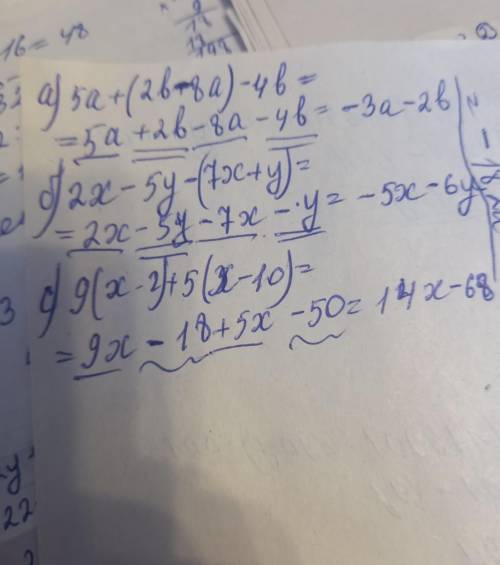 16 = 48
а) 5a+(2b-8a)-4b=
= 5a+2b-8a-4b= -3a-2b
б) 2x-5y-(7x+y)=
= 2x-5y-7x-y= -5x-6y
с) 9(x-2)+5(x-10)=
= 9x-18+5x-50= 14x-68
3
22